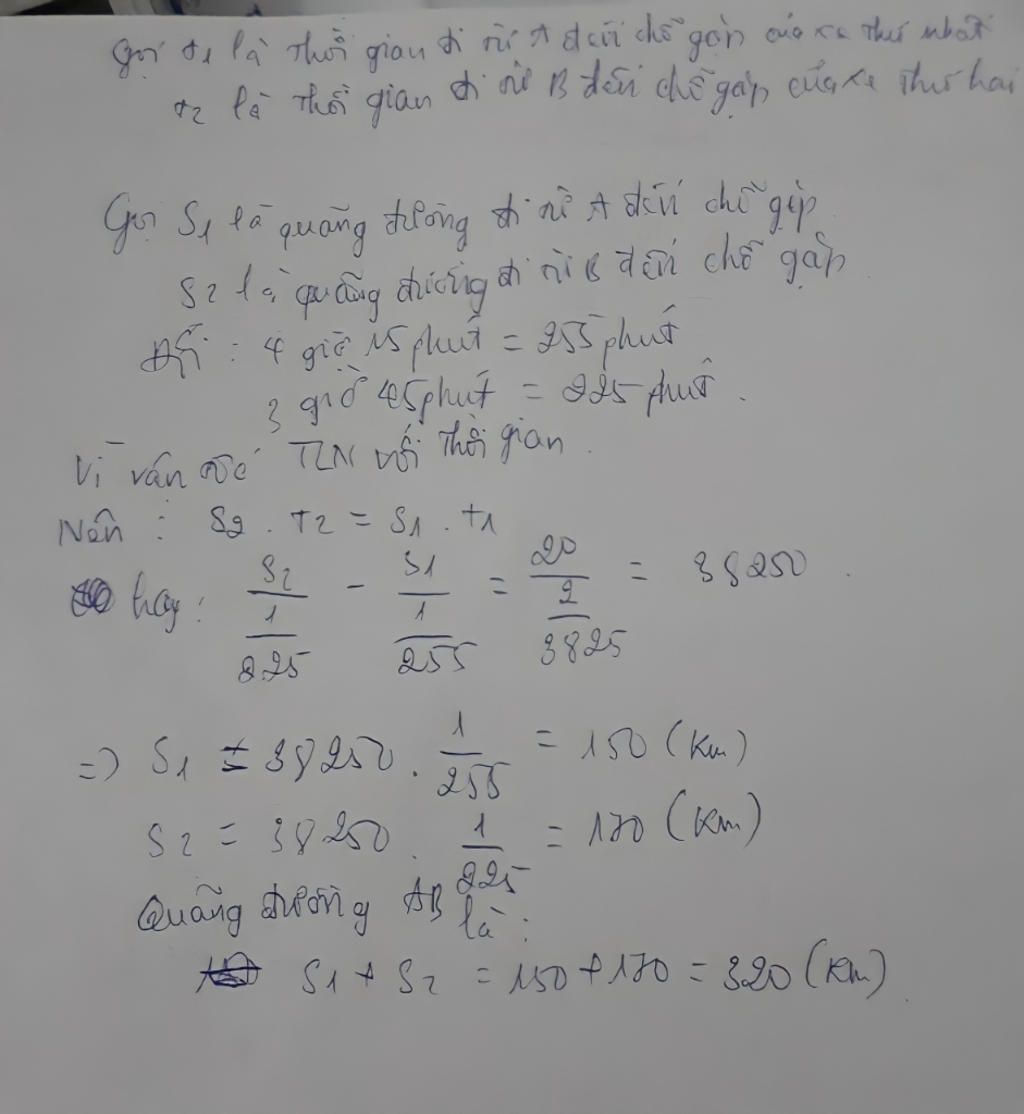 Gọi t1 là thời gian đi từ A đến chỗ gặp của xe thứ nhất
t2 là thời gian đi từ B đến chỗ gặp của xe thứ hai
Gọi S1 là quãng đường đi từ A đến chỗ gặp
S2 là quãng đường đi từ B đến chỗ gặp
Đổi : 4 giờ 15 phút = 255 phút
3 giờ 45 phút = 225 phút.
Vì vận tốc TLN với thời gian.
Nên : S2 . t2 = S1 . t1
hay : S2/(1/225) - S1/(1/255) = 20/(2/3825) = 38250.
=> S1 = 38250 . 1/255 = 150 (Km)
S2 = 38250 . 1/225 = 170 (Km)
Quãng đường AB là :
S1 + S2 = 150 + 170 = 320 (Km).